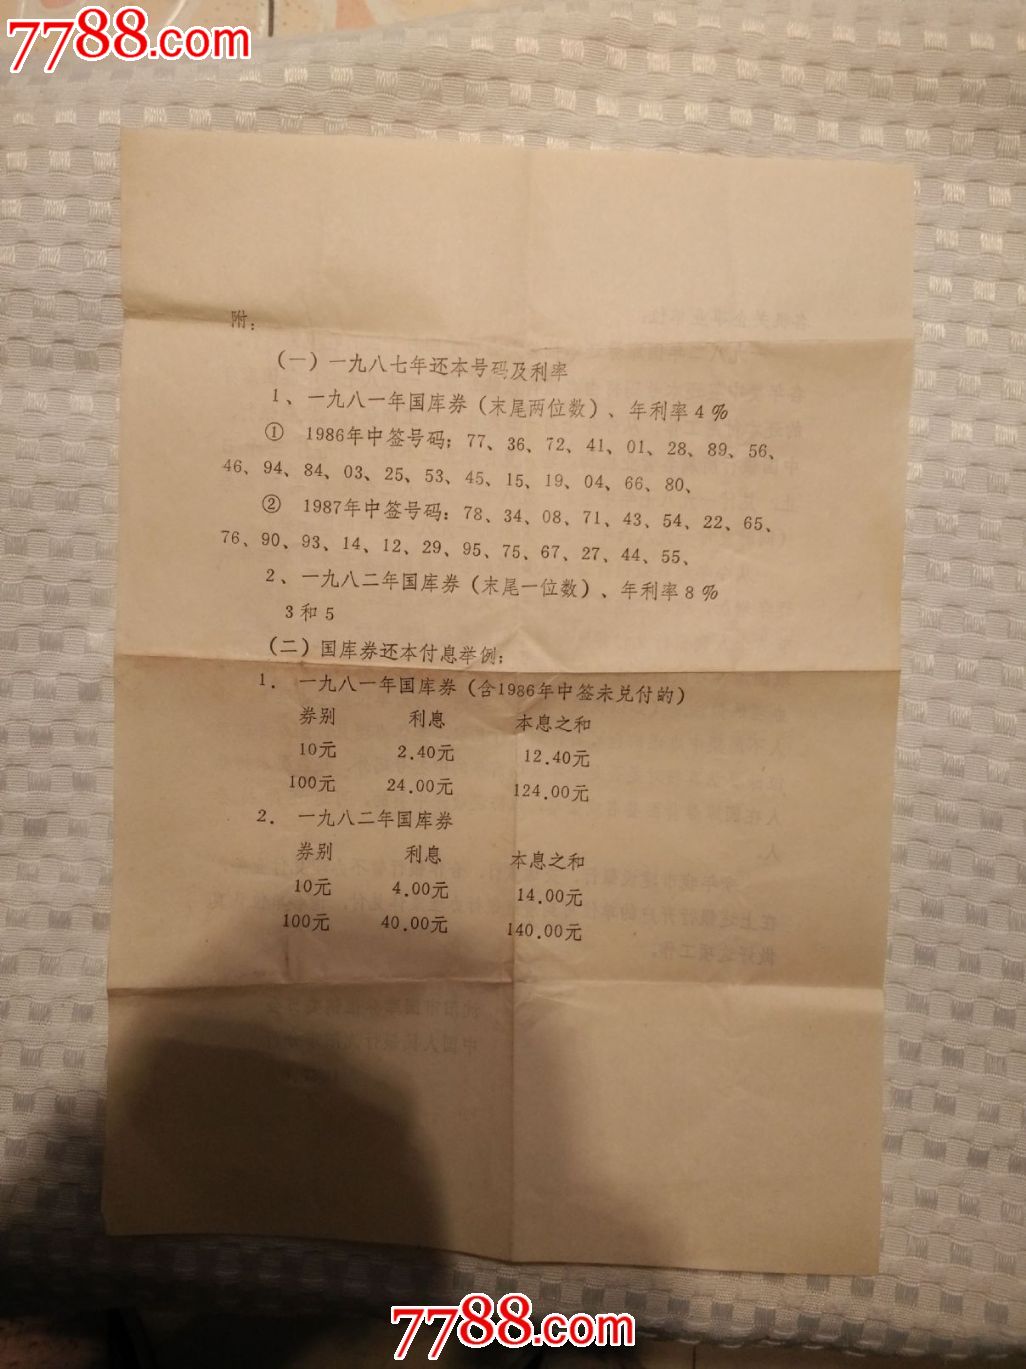 7788.com
7788.com
附：
（一）一九八七年还本号码及利率
1、一九八一年国库券（末尾两位数）、年利率4%
① 1986年中签号码；77、36、72、41、01、28、89、56、
46、94、84、03、25、53、45、15、19、04、66、80、
② 1987年中签号码：78、34、08、71、43、54、22、65、
76、90、93、14、12、29、95、75、67、27、44、55、
2、一九八二年国库券（末尾一位数）、年利率8%
3和5
（二）国库券还本付息举例；
1． 一九八一年国库券（含1986年中签未兑付的）
券别 利息 本息之和
10元 2.40元 12.40元
100元 24.00元 124.00元
2． 一九八二年国库券
券别 利息 本息之和
10元 4.00元 14.00元
100元 40.00元 140.00元
7788.com